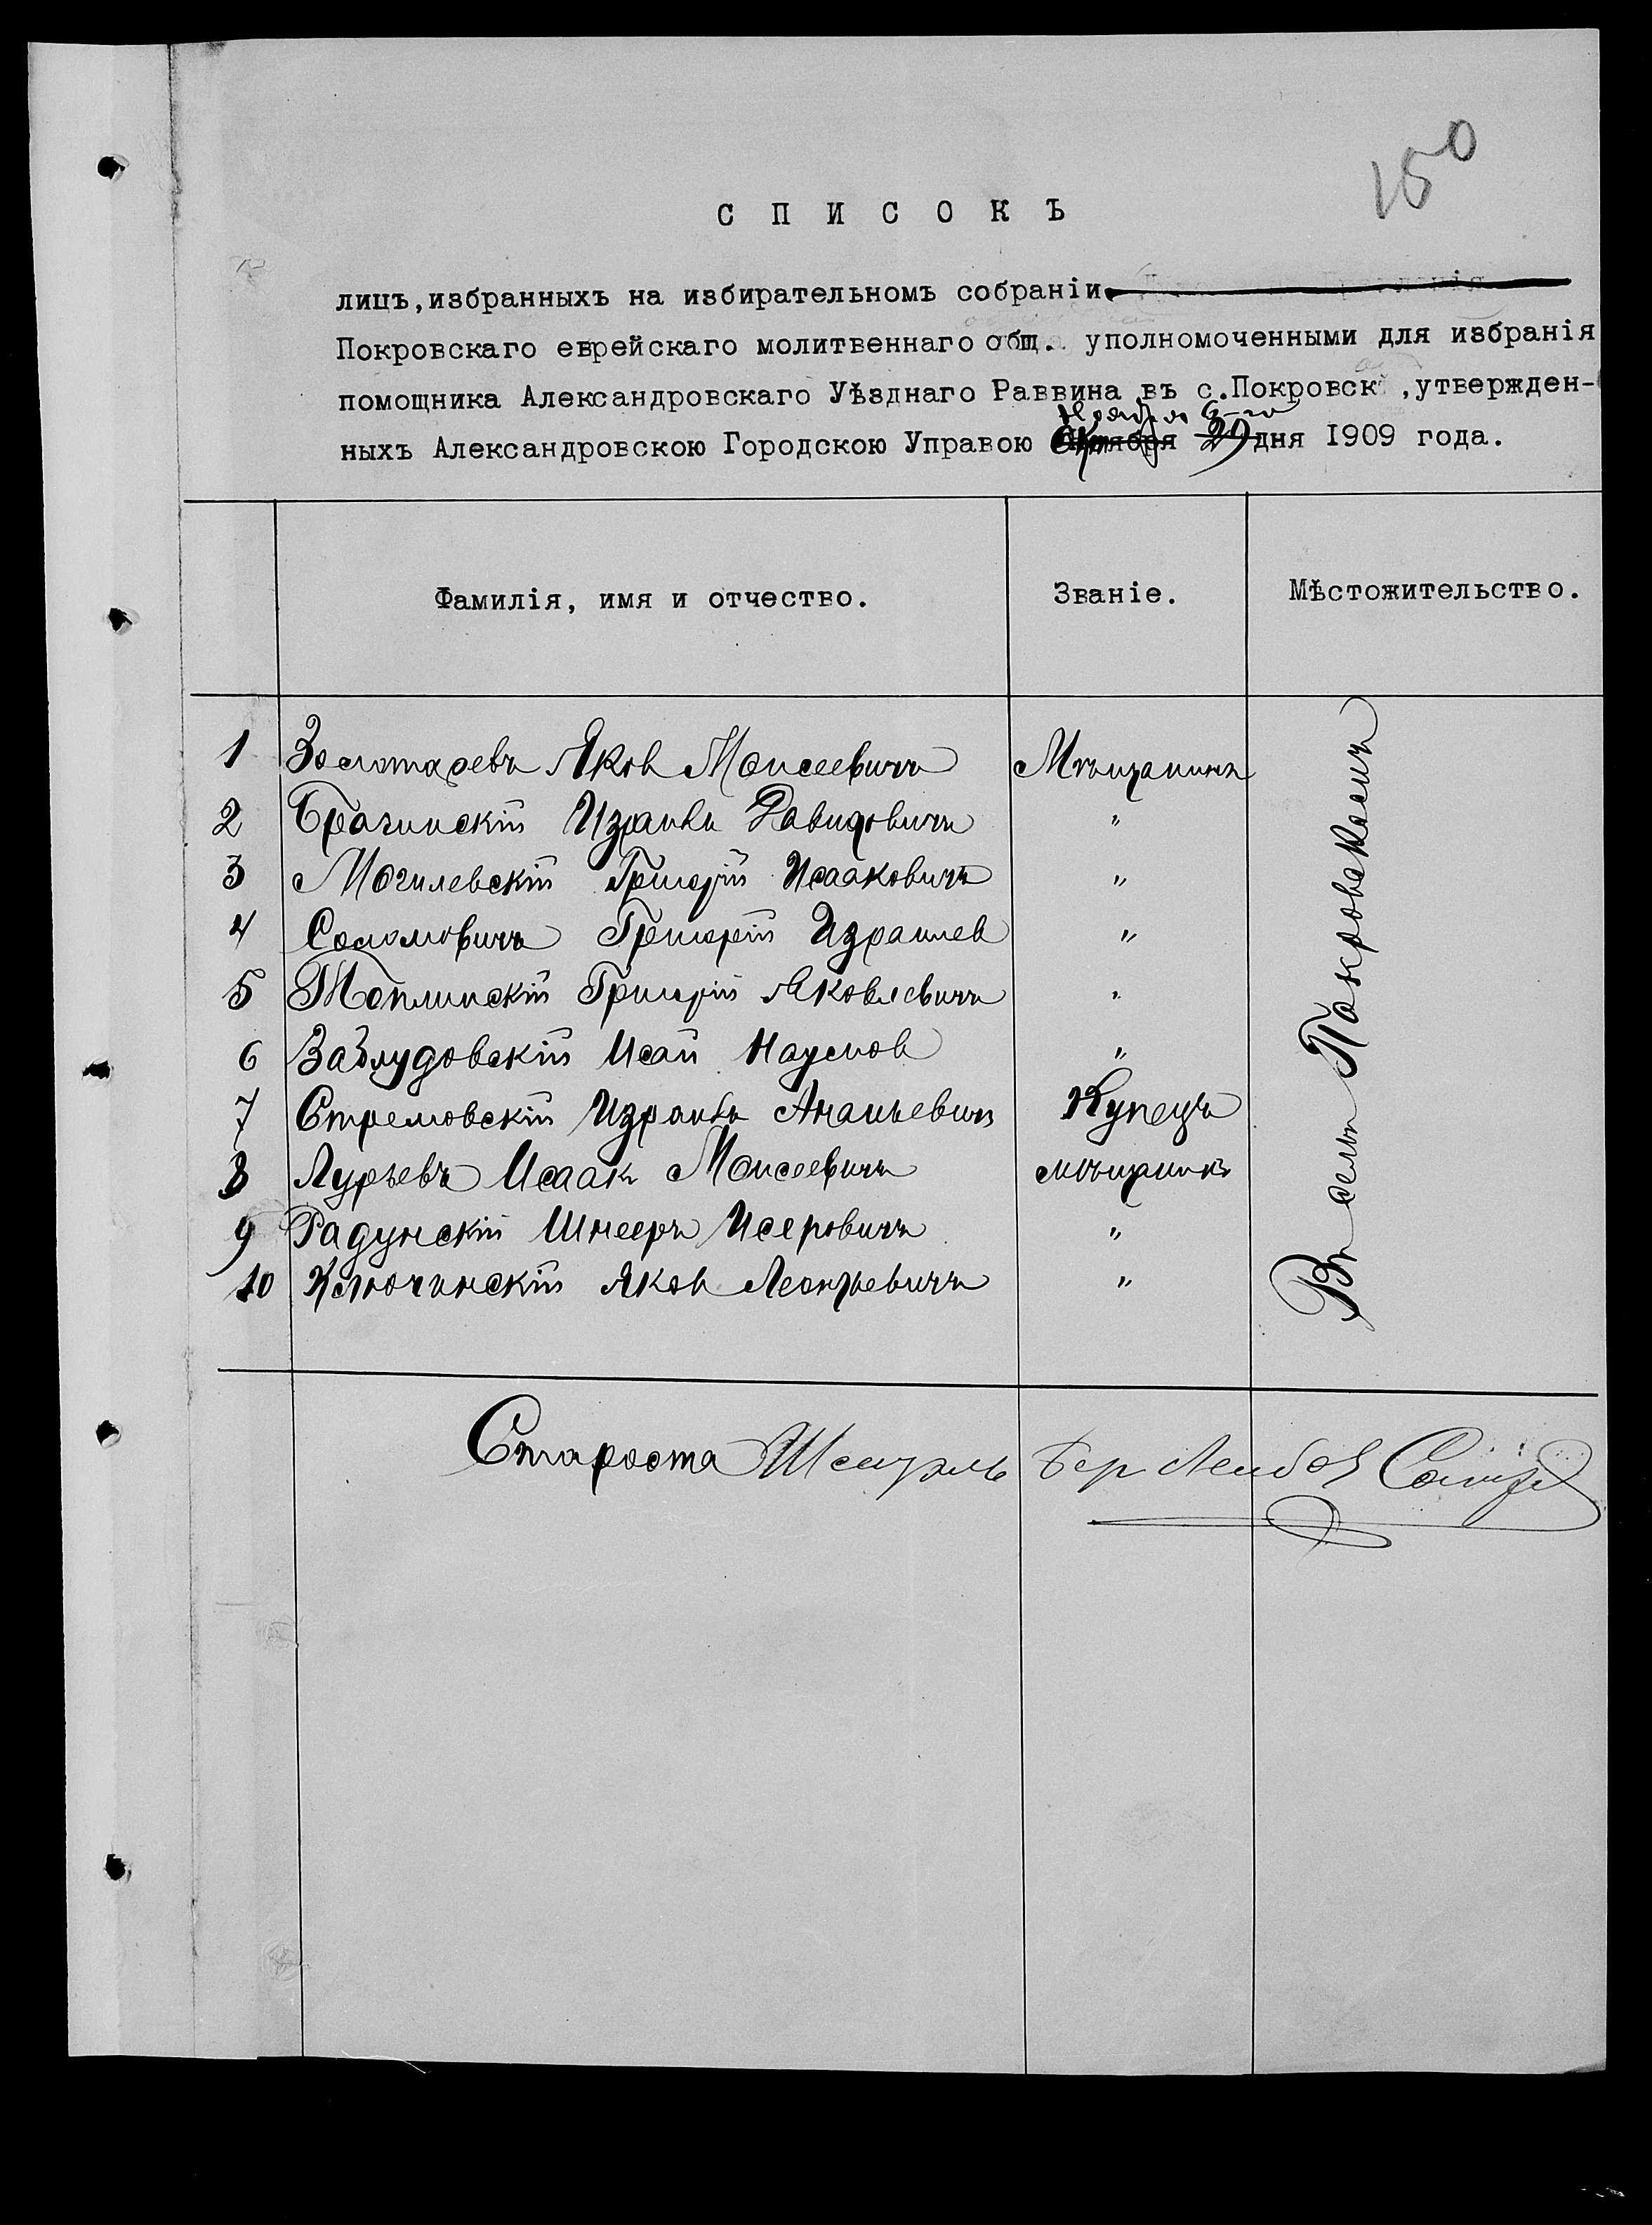 150
СПИСОКЪ
лицъ, избранныхъ на избирательномъ собраніи
Покровскаго еврейскаго молитвеннаго общ. уполномоченными для избранія
помощника Александровскаго Уѣзднаго Раввина въ с.Покровск ,утвержден-
Ноября 6-го
ныхъ Александровскою Городскою Управою Октября 29 дня 1909 года.
Фамилія, имя и отчество. Званіе. Мѣстожительство.
1 Золотаревъ Яков Моисеевичъ Мѣщанинъ
2 Брагинскій Израиль Давидовичъ "
3 Могилевскій Григорій Исааковичъ "
4 Соломовичъ Григорій Израилев "
5 Топлинскій Григорій Яковлевичъ "
6 Заблудовскій Исай Наумов "
7 Стремовскій Израиль Ананьевичъ Купецъ
8 Лурьевъ Исаак Моисеевичъ мѣщанинъ
9 Радунскій Шнееръ Исеровичъ "
10 Ключинскій Яков Леонтьевичъ "
Въ селѣ Покровскомъ
Староста Шмуэль Бер Лейбов